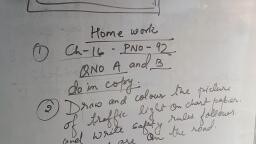 Home work
(1) Ch-16 - PNO-92
QNO A and B
do in copy.
(2) Draw and colour the picture
of traffic light on chart paper.
and write safety rules follows
are on the road